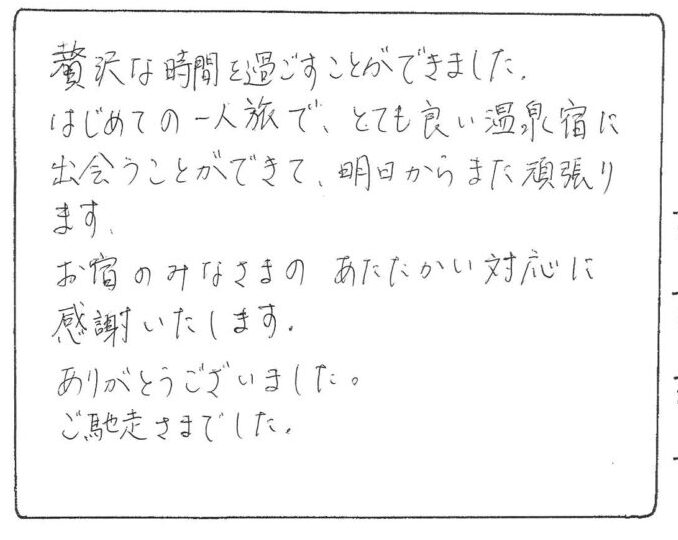 贅沢な時間を過ごすことができました.
はじめての一人旅で、とても良い温泉宿に
出会うことができて、明日からまた頑張り
ます、
お宿のみなさまの あたたかい対応に
感謝いたします。
ありがとうございました。
ご馳走さまでした。